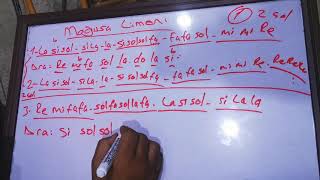 Magusa Limani
2 sol
1-La si sol - si La - la - si sol sol fa - fa fa sol - mi mi Re
b b
Ara: Re mi fa sol la do la si:
2-La si sol - si La - la si sol sol fa - fa fa sol - mi mi Re - Re Re Re
3. Re mi fa fa - sol fa sol la fa. La si sol - si La la
Ara: Si sol sol